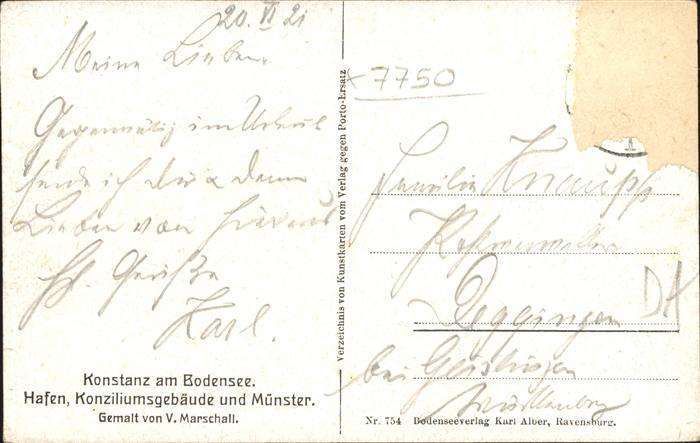 20. VI 21
Meine Lieben.
Gegenwärtig im Urlaub
sende ich dir & deinen
Lieben von hier aus
Hl. Grüße
Karl.
Konstanz am Bodensee.
Hafen, Konziliumsgebäude und Münster.
Gemalt von V. Marschall.
Verzeichnis von Kunstkarten vom Verlag gegen Porto-Ersatz
7750
Familie Knaupp
Deggingen
bei Geislingen
Württemberg
DA
Nr. 754 Bodenseeverlag Karl Alber, Ravensburg.